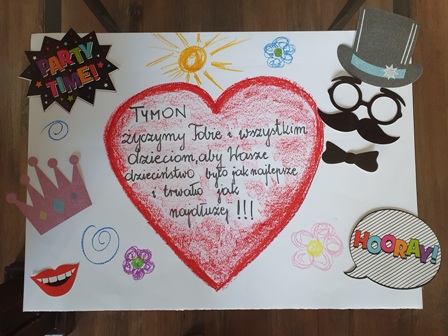 PARTY
TIME!
TYMON
życzymy Tobie i wszystkim
dzieciom, aby Wasze
dzieciństwo było jak najlepsze
i trwało jak
najdłużej !!!
HOORAY!